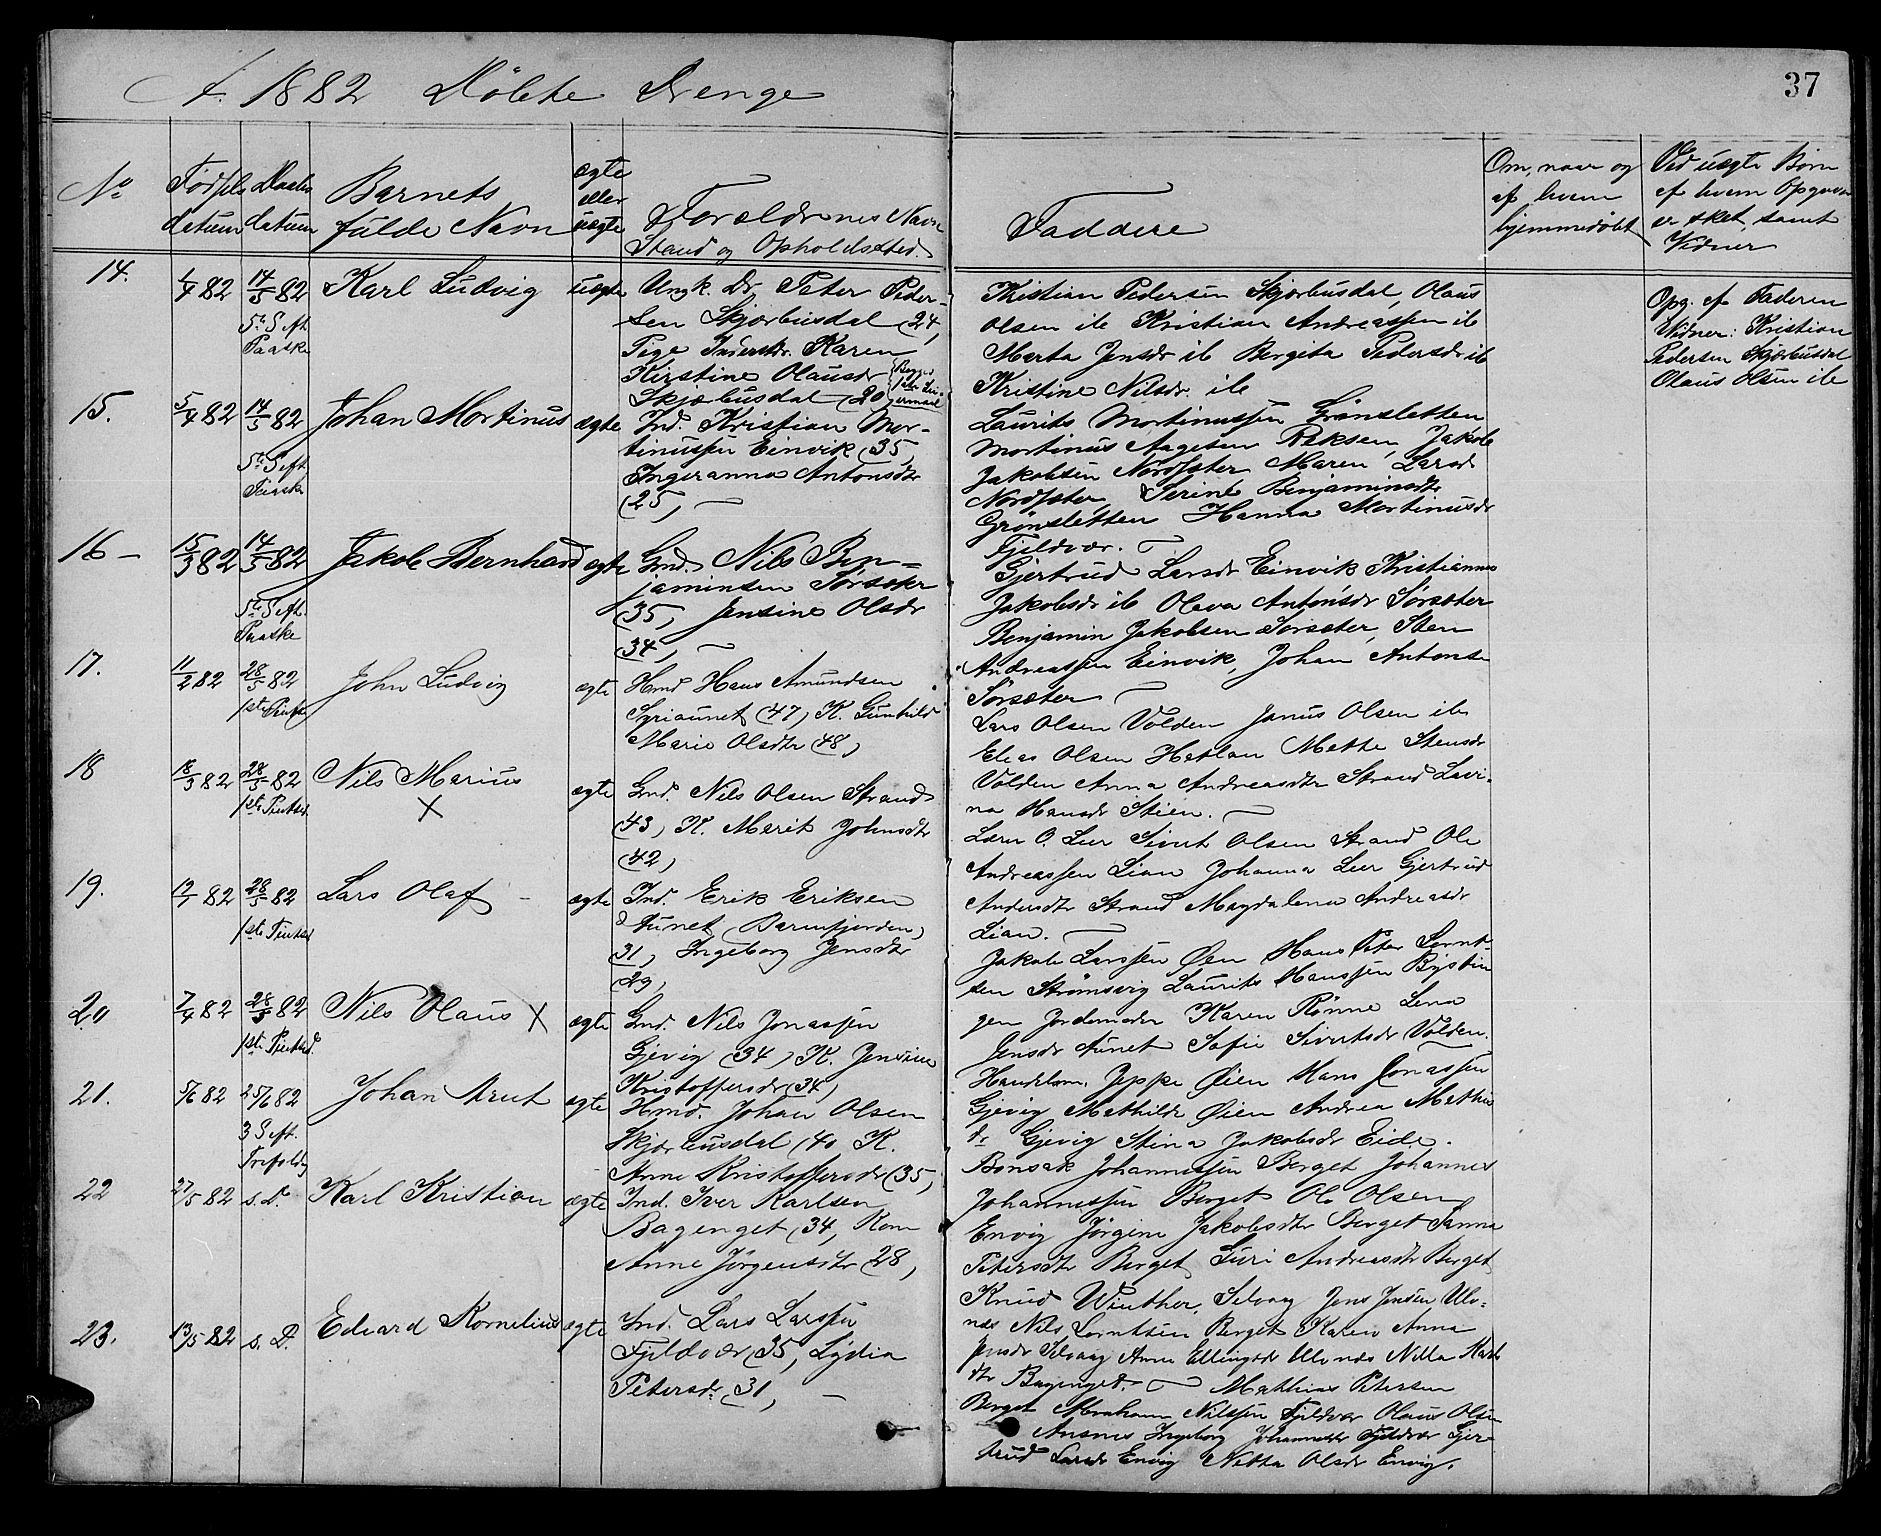 A. 1882 Döbte Drenge
37
No
Fødsels
datum
Daabs
datum
Barnets
fulde Navn
ægte
eller
uægte
Forældrenes Navn
Stand og Opholdssted.
Faddere
Om, naar og
af hvem
hjemmedöbt
Ved uægte Børn
af hvem Opgaven
er sket, samt
Vidner
14.
1/4 82
14/5 82
5te S. eft.
Paaske
Karl Ludvig
uægte
Ungk. Dr. Peter Peder-
sen Skjærbusdal (24,
Pige Inderstdr. Karen
Kirstine Olausdr
Skjærbusdal (20,
Kristian Pedersen Skjærbusdal, Olaus
Olsen ib Kristian Andreassen ib
Marta Jensdr ib Bergita Pedersdr ib
Kristine Nilsdr. ib
Opg. af Faderen
Vidner: Kristian
Pedersen Skjærbusdal
Olaus Olsen ib
15.
5/4 82
14/5 82
5te S. eft.
Paaske
Johan Mortinus
ægte
Ind. Kristian Mor-
tinussen Einvik (35,
Ingeranna Antonsdtr
(25,
Laurits Mortinussen Grönsletten
Mortinus Aagesen Jakob
Jakobsen Nordsæter Maren Larsdr
Nordsæter, Serine Benjaminsdtr
Grönsletten Hanna Mortinusdr
Fjeldvær.
16 –
15/3 82
14/5 82
5te S. eft.
Paaske
Jakob Bernhard
ægte
Gmd. Nils Ben-
jaminsen Sörsæter
(35, Jensine Olsdr
(34,
Gjertrud Larsdr Einvik Kristianna
Jakobsdr ib Oleva Antonsdr Sörsæter
Benjamin Jakobsen Sörsæter, Sten
Andreassen Einvik, Johan Antons-
Sörsæter
17.
11/2 82
28/5 82
1ste Pintsed
John Ludvig
ægte
Hmd Hans Amundsen
Syriaunet (47, K. Gunhild
Marie Olsdtr (48,
Lars Olsen Volden Janus Olsen ib
Elias Olsen Hatlan Mette Stensdr
Volden Anna Andreasdtr Strand Lavi-
na Hansdr Stien.
18
18/3 82
28/5 82
1ste Pintsed.
Nils Marius
X
ægte
Gmd. Nils Olsen Strand
(43, K. Marit Johnsdtr
(42,
Lærer O. Leer Sivert Olsen Strand Ole
Andreassen Lian Johanna Leer Gjertrud
Andersdtr Strand Magdalena Andreasdr
Lian.
19.
12/1 82
28/5 82
1ste Pintsd
Lars Olaf
ægte
Ind. Erik Eriksen
Aunet (Barmfjorden,
31, Ingeborg Jensdtr
(29,
Jakob Larssen Øen Hans Peter Lornt-
sen Strömsvig Laurits Hanssen Bystin
gen Jordemoder Karen Rönne Lena
Jensdr Aunet Sofie Sivertsdr Volden.
20
7/4 82
28/5 82
1ste Pintsed.
Nils Olaus X
ægte
Gmd. Nils Jonassen
Gjevig (34, K. Jensine
Kristoffersdr (34,
Handelsm. Jeppe Øien Hans Jonassen
Gjevig Mathilde Øien Andrea Mathia
dr Gjevig Stina Jakobsdr Eide.
21.
5/6 82
25/6 82
3 S. eft.
Trefoldg
Johan Arnt
ægte
Hmd. Johan Olsen
Skjærbusdal (40 K.
Anne Kristoffersdr (35,
Bonsak Johannessen Berget Johannes
Johannessen Berget Ole Olsen
Envig Jörgine Jakobsdtr Berget Sanna
Petersdtr Berget, Guri Andreasdtr Berget
22
27/5 82
s. D.
Karl Kristian
ægte
Ind. Iver Karlsen
Bagenget (34, Kone
Anne Jörgensdtr (28,
Knud Winther, Selvaag Jens Jensen Ulv-
nes Nils Lorntsen Berget Karen Anna
Jensdr Selvaag Anne Ellingsdr Ulvnes Nilla
dtr Bagenget.
23.
13/5 82
s. D.
Edvard Kornelius
ægte
Ind. Lars Larssen
Fjeldvær (35, Lydia
Petersdr (31,
Mathias Petersen
Berget Abraham Nilssen Fjeldvær Olaus Olsen
Ansnes Ingeborg Johannesdr Fjeldvær Gjer-
trud Larsdr Envig Netta Olsdr Envig.